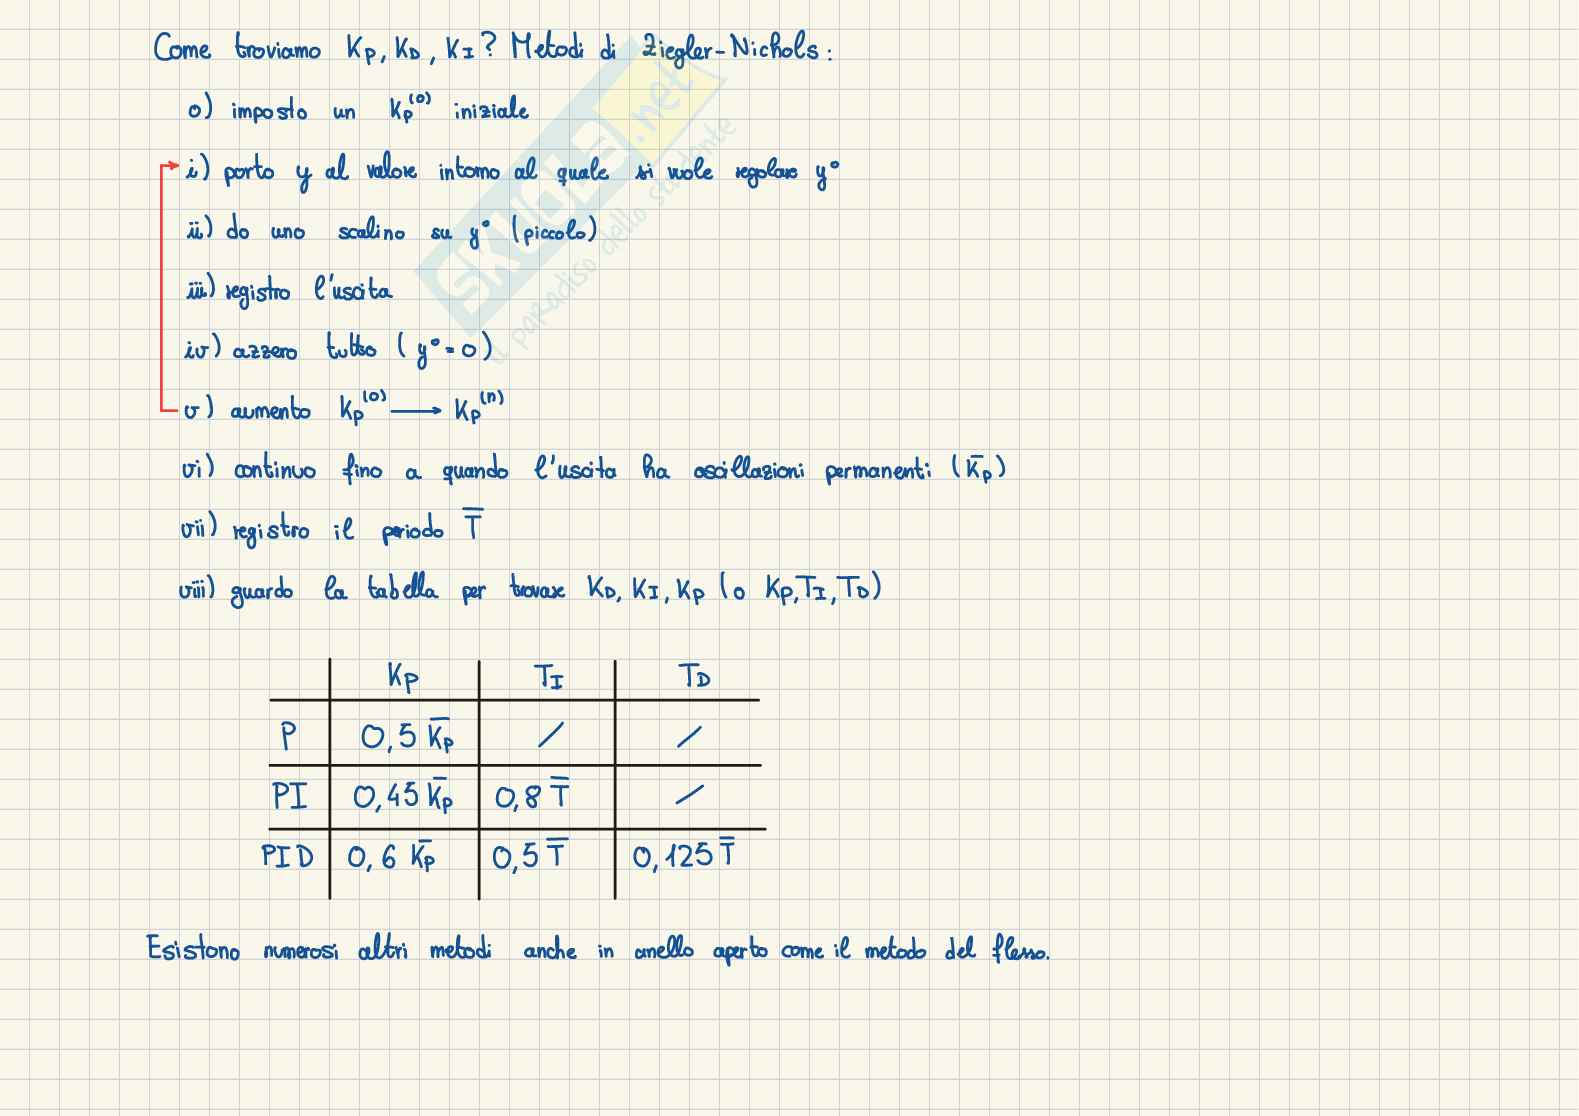 Come troviamo Kp, KD, KI? Metodi di Ziegler-Nichols:
0) imposto un Kp^(0) iniziale
i) porto y al valore intorno al quale si vuole regolare y°
ii) do uno scalino su y° (piccolo)
iii) registro l'uscita
iv) azzero tutto (y°=0)
v) aumento Kp^(0) → Kp^(n)
vi) continuo fino a quando l'uscita ha oscillazioni permanenti (K̄p)
vii) registro il periodo T̄
viii) guardo la tabella per trovare KD, KI, Kp (o Kp, TI, TD)
Kp TI TD
P 0,5 K̄p / /
PI 0,45 K̄p 0,8 T̄ /
PID 0,6 K̄p 0,5 T̄ 0,125 T̄
Esistono numerosi altri metodi anche in anello aperto come il metodo del flesso.
SKUOLA.net
il paradiso dello studente